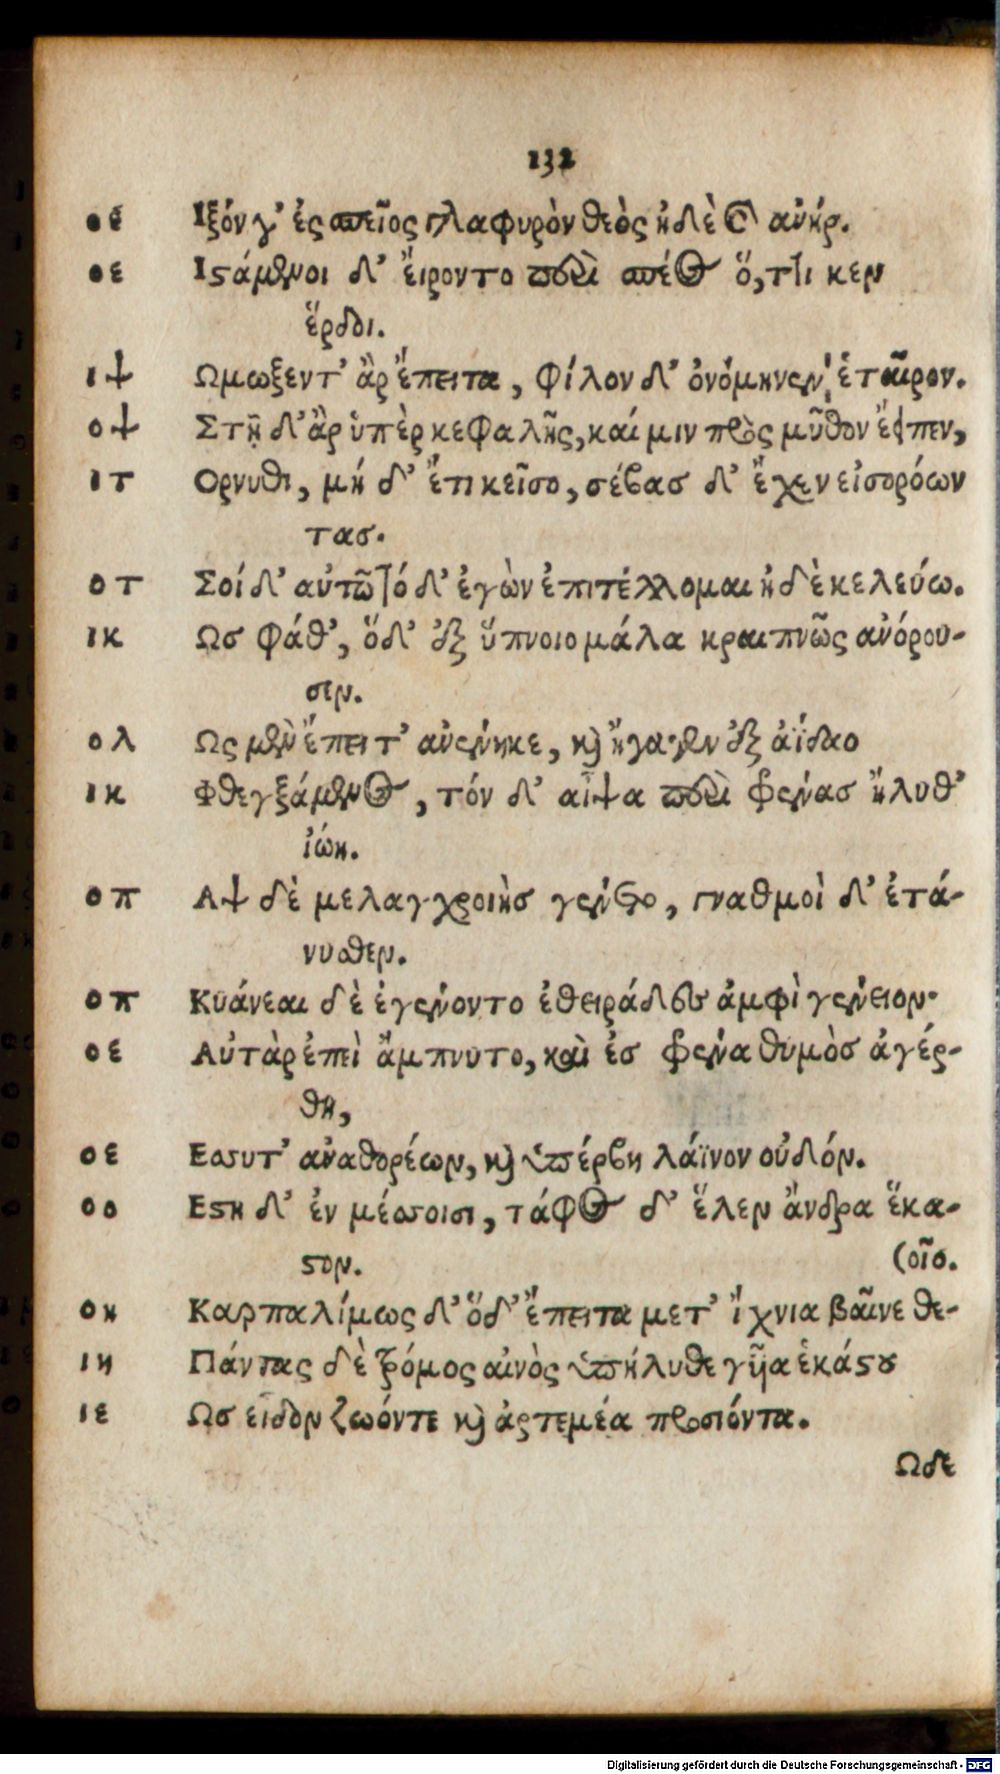 132
οε Ιξόν γ' ἐς σπεῖος γλαφυρὸν θεὸς ἠδὲ καὶ ἀνήρ.
οε Ιστάμενοι δ' ἔιροντο περὶ σπέος ὅ,ττι κεν
ἔρδοι.
ιψ Ωμωξεν τ' ἂρ ἔπειτα, φίλον δ' ὀνόμηνεν ἑταῖρον.
οψ Στῆ δ' ἂρ ὑπὲρ κεφαλῆς, καί μιν πρὸς μῦθον ἔειπεν,
ιτ Ορνυθι, μή δ' ἔτι κεῖσο, σέβασ δ' ἔχεν εἰσορόων
τασ.
οτ Σοί δ' αὐτῷ τό δ' ἐγὼν ἐπιτέλλομαι ἠδὲ κελεύω.
ικ Ωσ φάθ', ὅδ' ἐξ ὕπνοιο μάλα κραιπνῶς ἀνόρου-
σεν.
ολ Ως μὲν ἔπειτ' ἀνένηκε, καὶ ἤγαγεν ἐξ ἀΐδαο
ικ Φθεγξάμενος, τόν δ' αἶψα περὶ φρένας ἤλυθ'
ἰώη.
οπ Αψ δὲ μελαγχροιὴσ γένετο, γναθμοὶ δ' ἐτά-
νυσθεν.
οπ Κυάνεαι δὲ ἐγένοντο ἐθειράδες ἀμφὶ γένειον.
οε Αὐτὰρ ἐπεὶ ἄμπνυτο, καὶ ἐσ φρένα θυμὸσ ἀγέρ-
θη,
οε Εσσυτ' ἀναθορέων, καὶ ὑπέρβη λάϊνον οὐδόν.
οο Εστη δ' ἐν μέσσοισι, τάφος δ' ἕλεν ἄνδρα ἕκα-
στον. (οῖσ.
οη Καρπαλίμως δ' ὅδ' ἔπειτα μετ' ἴχνια βαῖνε θε-
ιη Πάντας δὲ τρόμος αἰνὸς ὑπήλυθε γυῖα ἑκάστου
ιε Ωσ εἶδον ζωόντε καὶ ἀρτεμέα προσιόντα.
Ωδε
Digitalisierung gefördert durch die Deutsche Forschungsgemeinschaft - DFG